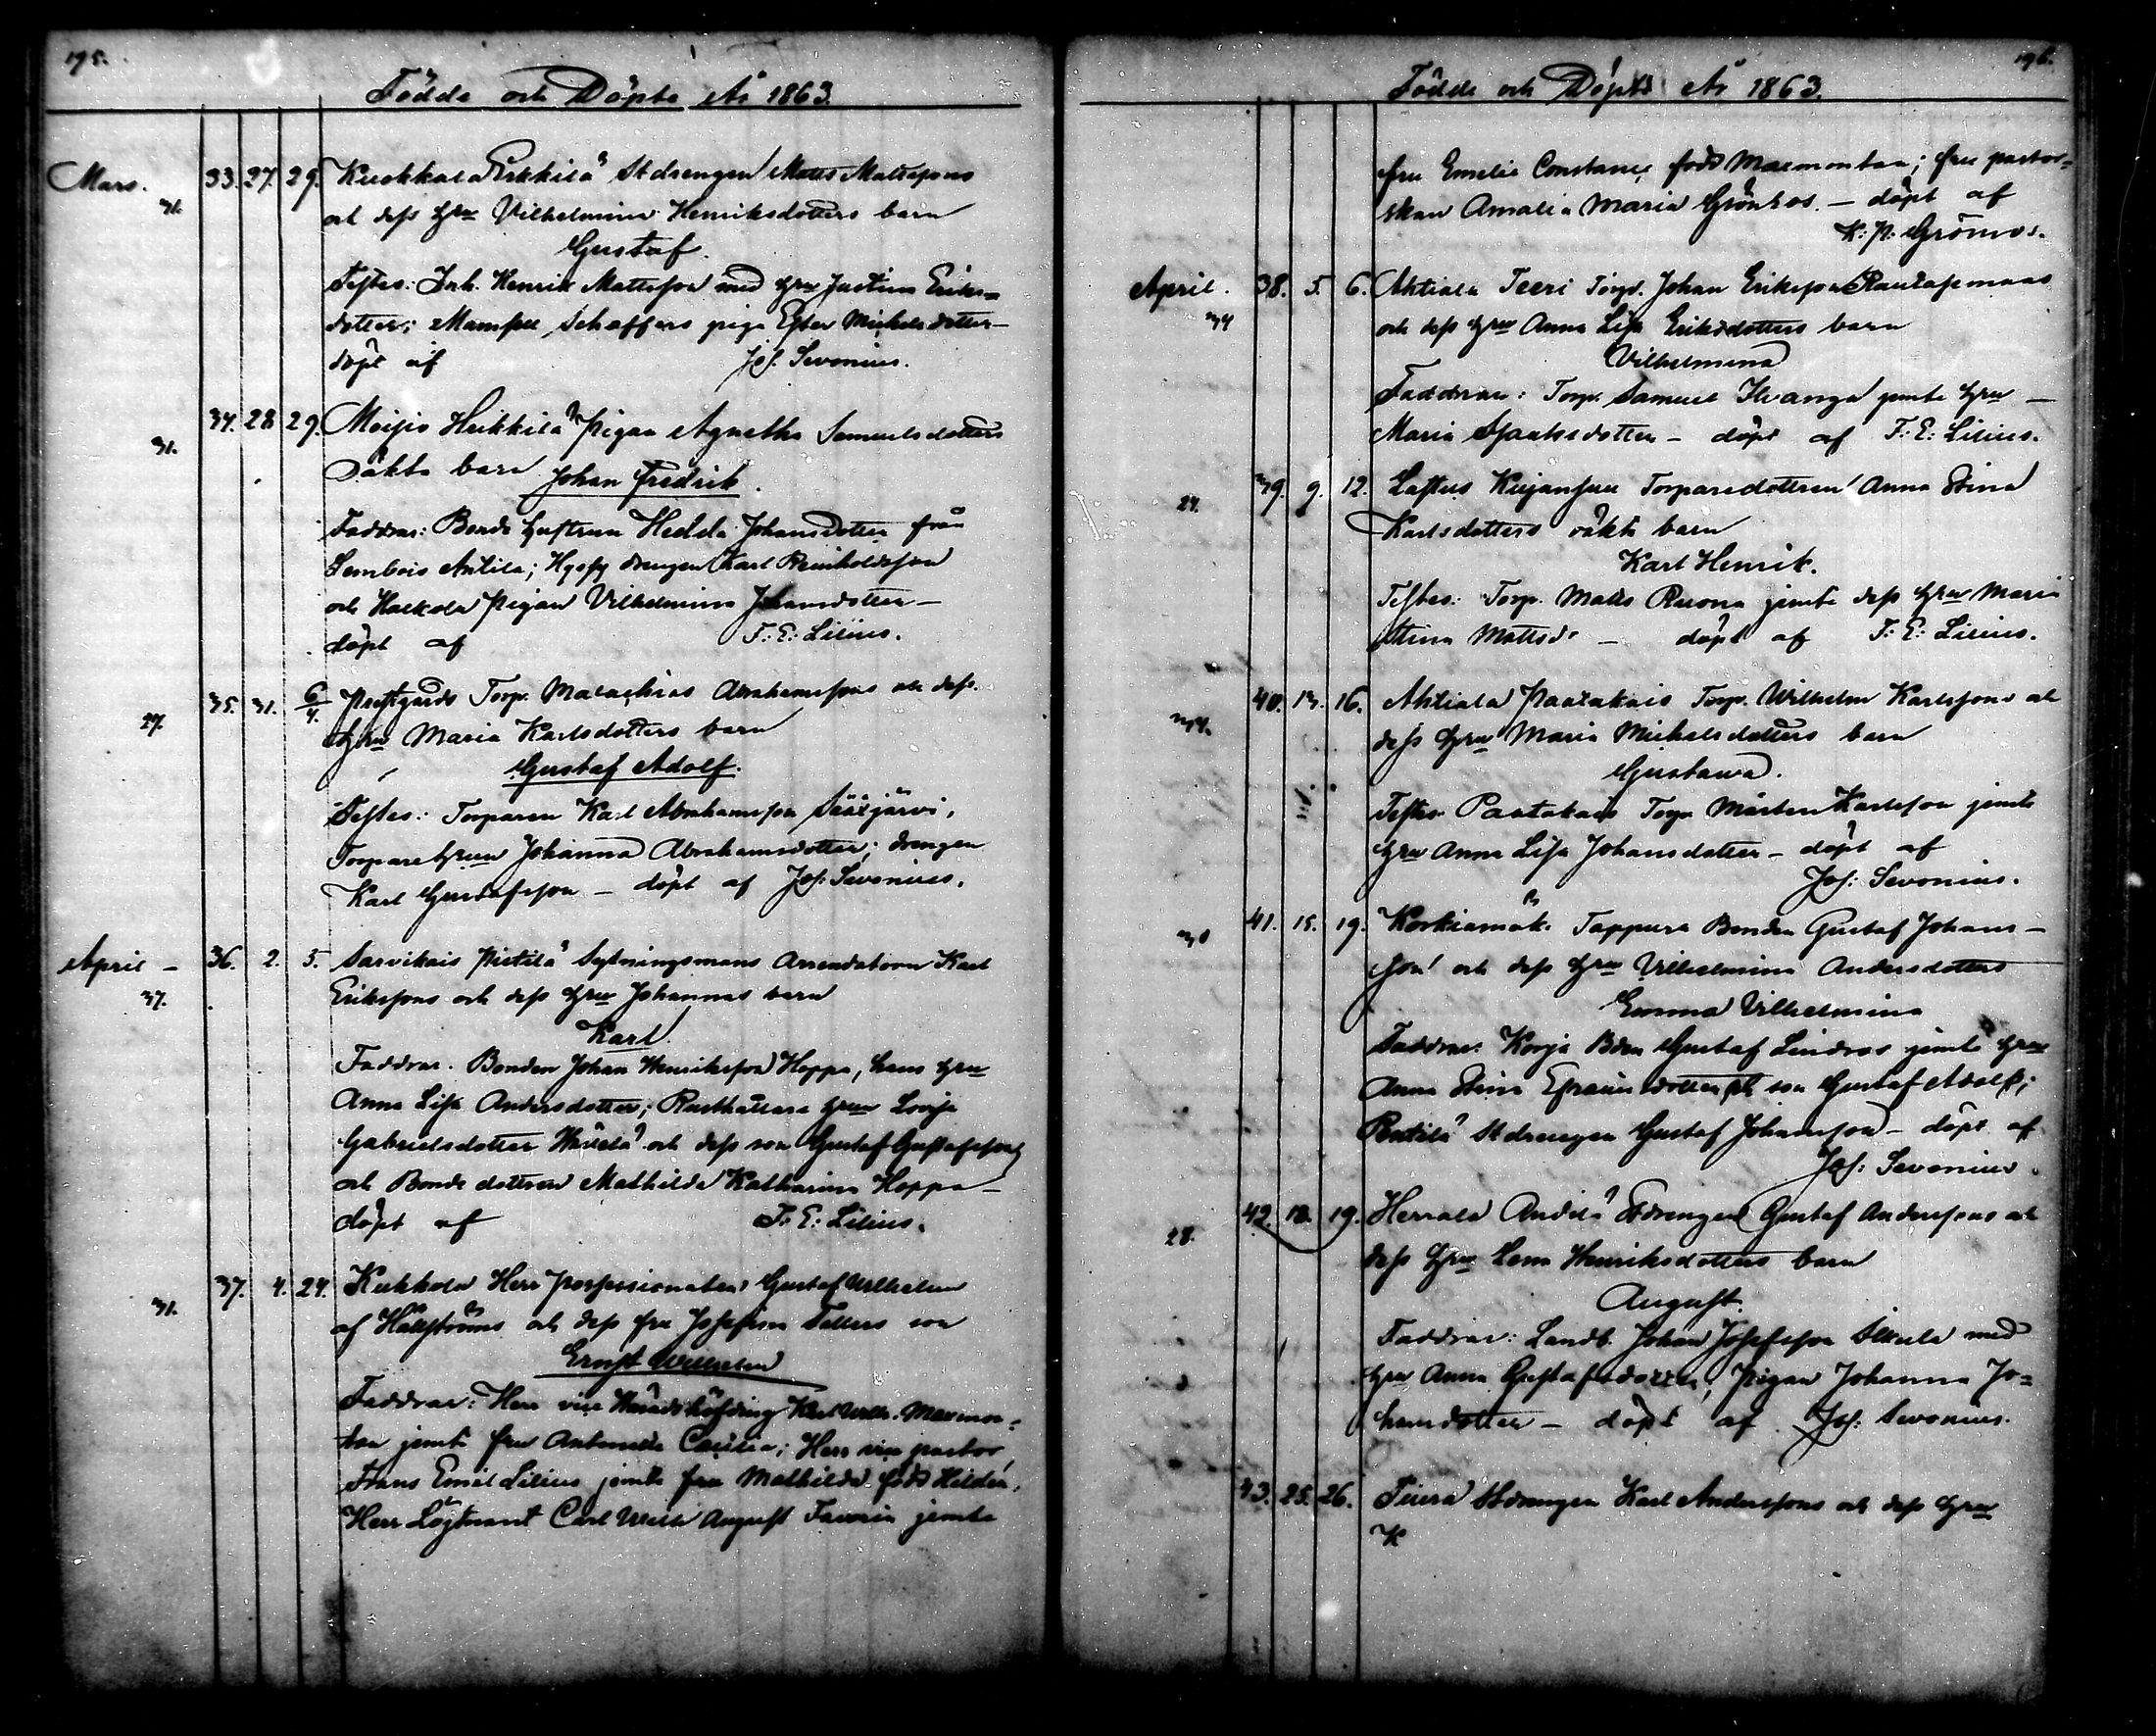 195.
Födde och Döpte År 1863.
Mars. 33. 27. 29. Kuokkala Erkkilä Stdrengen Matts Mattssons
31. och dess Hru Vilhelmina Henriksdotters barn
Gustaf.
Testes: Inh. Henrik Mattsson med Hru Justina Eriks-
dotter; Mamsell Schaffers piga Ester Michelsdotter -
döpt af Jos. Sevonius.
34. 28. 29. Moisio Heikkilä Pigan Agnetha Samuelsdotters
31. oäkta barn Johan Fredrik.
Faddrar: Bonde hustrun Hedda Johansdotter från
Lembois Antila; drengen Karl Reinholdsson
och Pigan Vilhelmina Johansdotter -
döpt af F: E: Lilius.
35. 31. 6/4. Prestgårds Torp. Malachias Abrahamssons och dess
27. Hru Maria Karlsdotters barn
Gustaf Adolf.
Testes: Torparen Karl Abrahamsson Sääxjärvi,
Torpare Hrun Johanna Abrahamsdotter; drengen
Karl Gustafsson - döpt af Jos: Sevonius.
April - 36. 2. 5. Sarvikais Pietilä Sytningsmans Arrendatorn Karl
37. Erikssons och dess Hru Johannas barn
Karl.
Faddrar. Bonden Johan Henriksson Hoppa, hans Hru
Anna Lisa Andersdotter; Rusthållare Hrun Lovisa
Gabrielsdotter och dess son Gustaf Gustafsson
och Bonde dottren Mathilda Katharina Hoppa -
döpt af F: E: Lilius.
37. 4. 24. Kukkola Herr Possessionaten Gustaf Wilhelm
31. af Hällströms och dess fru Josefina Tallers son
Ernst Wilhelm
Faddrar: Herr vice Häradshöfding Karl Wilh. Marmon-
tan jemte fru Antonette Cæcilia; Herr vice pastor
Frans Emil Lilius jemte fru Mathilda född Hildén,
Herr Löjtnant Carl August Favorin jemte
196.
Födde och Döpte År 1863.
fru Emelie Constance född Marmontan; fru pastor-
skan Amalia Maria Grönroos. - döpt af
K: P: Grönroos.
April. 38. 5. 6. Ahtiala Teeri Torp. Johan Eriksson Rautasmaas
34 och dess Hru Anna Lisa Eriksdotters barn
Vilhelmina
Faddrar: Torp. Samuel jemte Hru -
Maria Isaaksdotter - döpt af F: E: Lilius.
24. 39. 9. 12. Lastus Kujansuu Torparedottren Anna Stina
Karlsdotters oäkta barn
Karl Henrik.
Testes: Torp. Matts Ruona jemte dess Hru Maria
Stina Mattsdr - döpt af F: E: Lilius.
40. 13. 16. Ahtiala Paatakais Torp. Wilhelm Karlssons och
34. dess Hru Maria Michelsdotters barn
Gustava.
Testes Paatakais Torp. Mårten Karlsson jemte
Hru Anna Lisa Johansdotter - döpt af
Jos: Sevonius.
41. 15. 19. Korkiamäki Tappura Bonden Gustaf Johans-
30 son och dess Hru Vilhelmina Andersdotters
Emma Vilhelmina
Faddrar. Korja Bden Gustaf Lindroos jemte Hru
Anna Stina Efraimsdotter och son Gustaf Adolf;
Penttilä Stdrengen Gustaf Johansson - döpt af
Jos: Sevonius.
42. 18. 19. Herrala Anttila Stdrengen Gustaf Anderssons och
28. dess Hru Lena Henriksdotters barn
August.
Faddrar: Landb. Johan Josefsson med
Hru Anna Gustafsdotter, Pigan Johanna Jo-
hansdotter - döpt af Jos: Sevonius.
43. 25. 26. Tiura Stdrengen Karl Anderssons och dess Hru
K